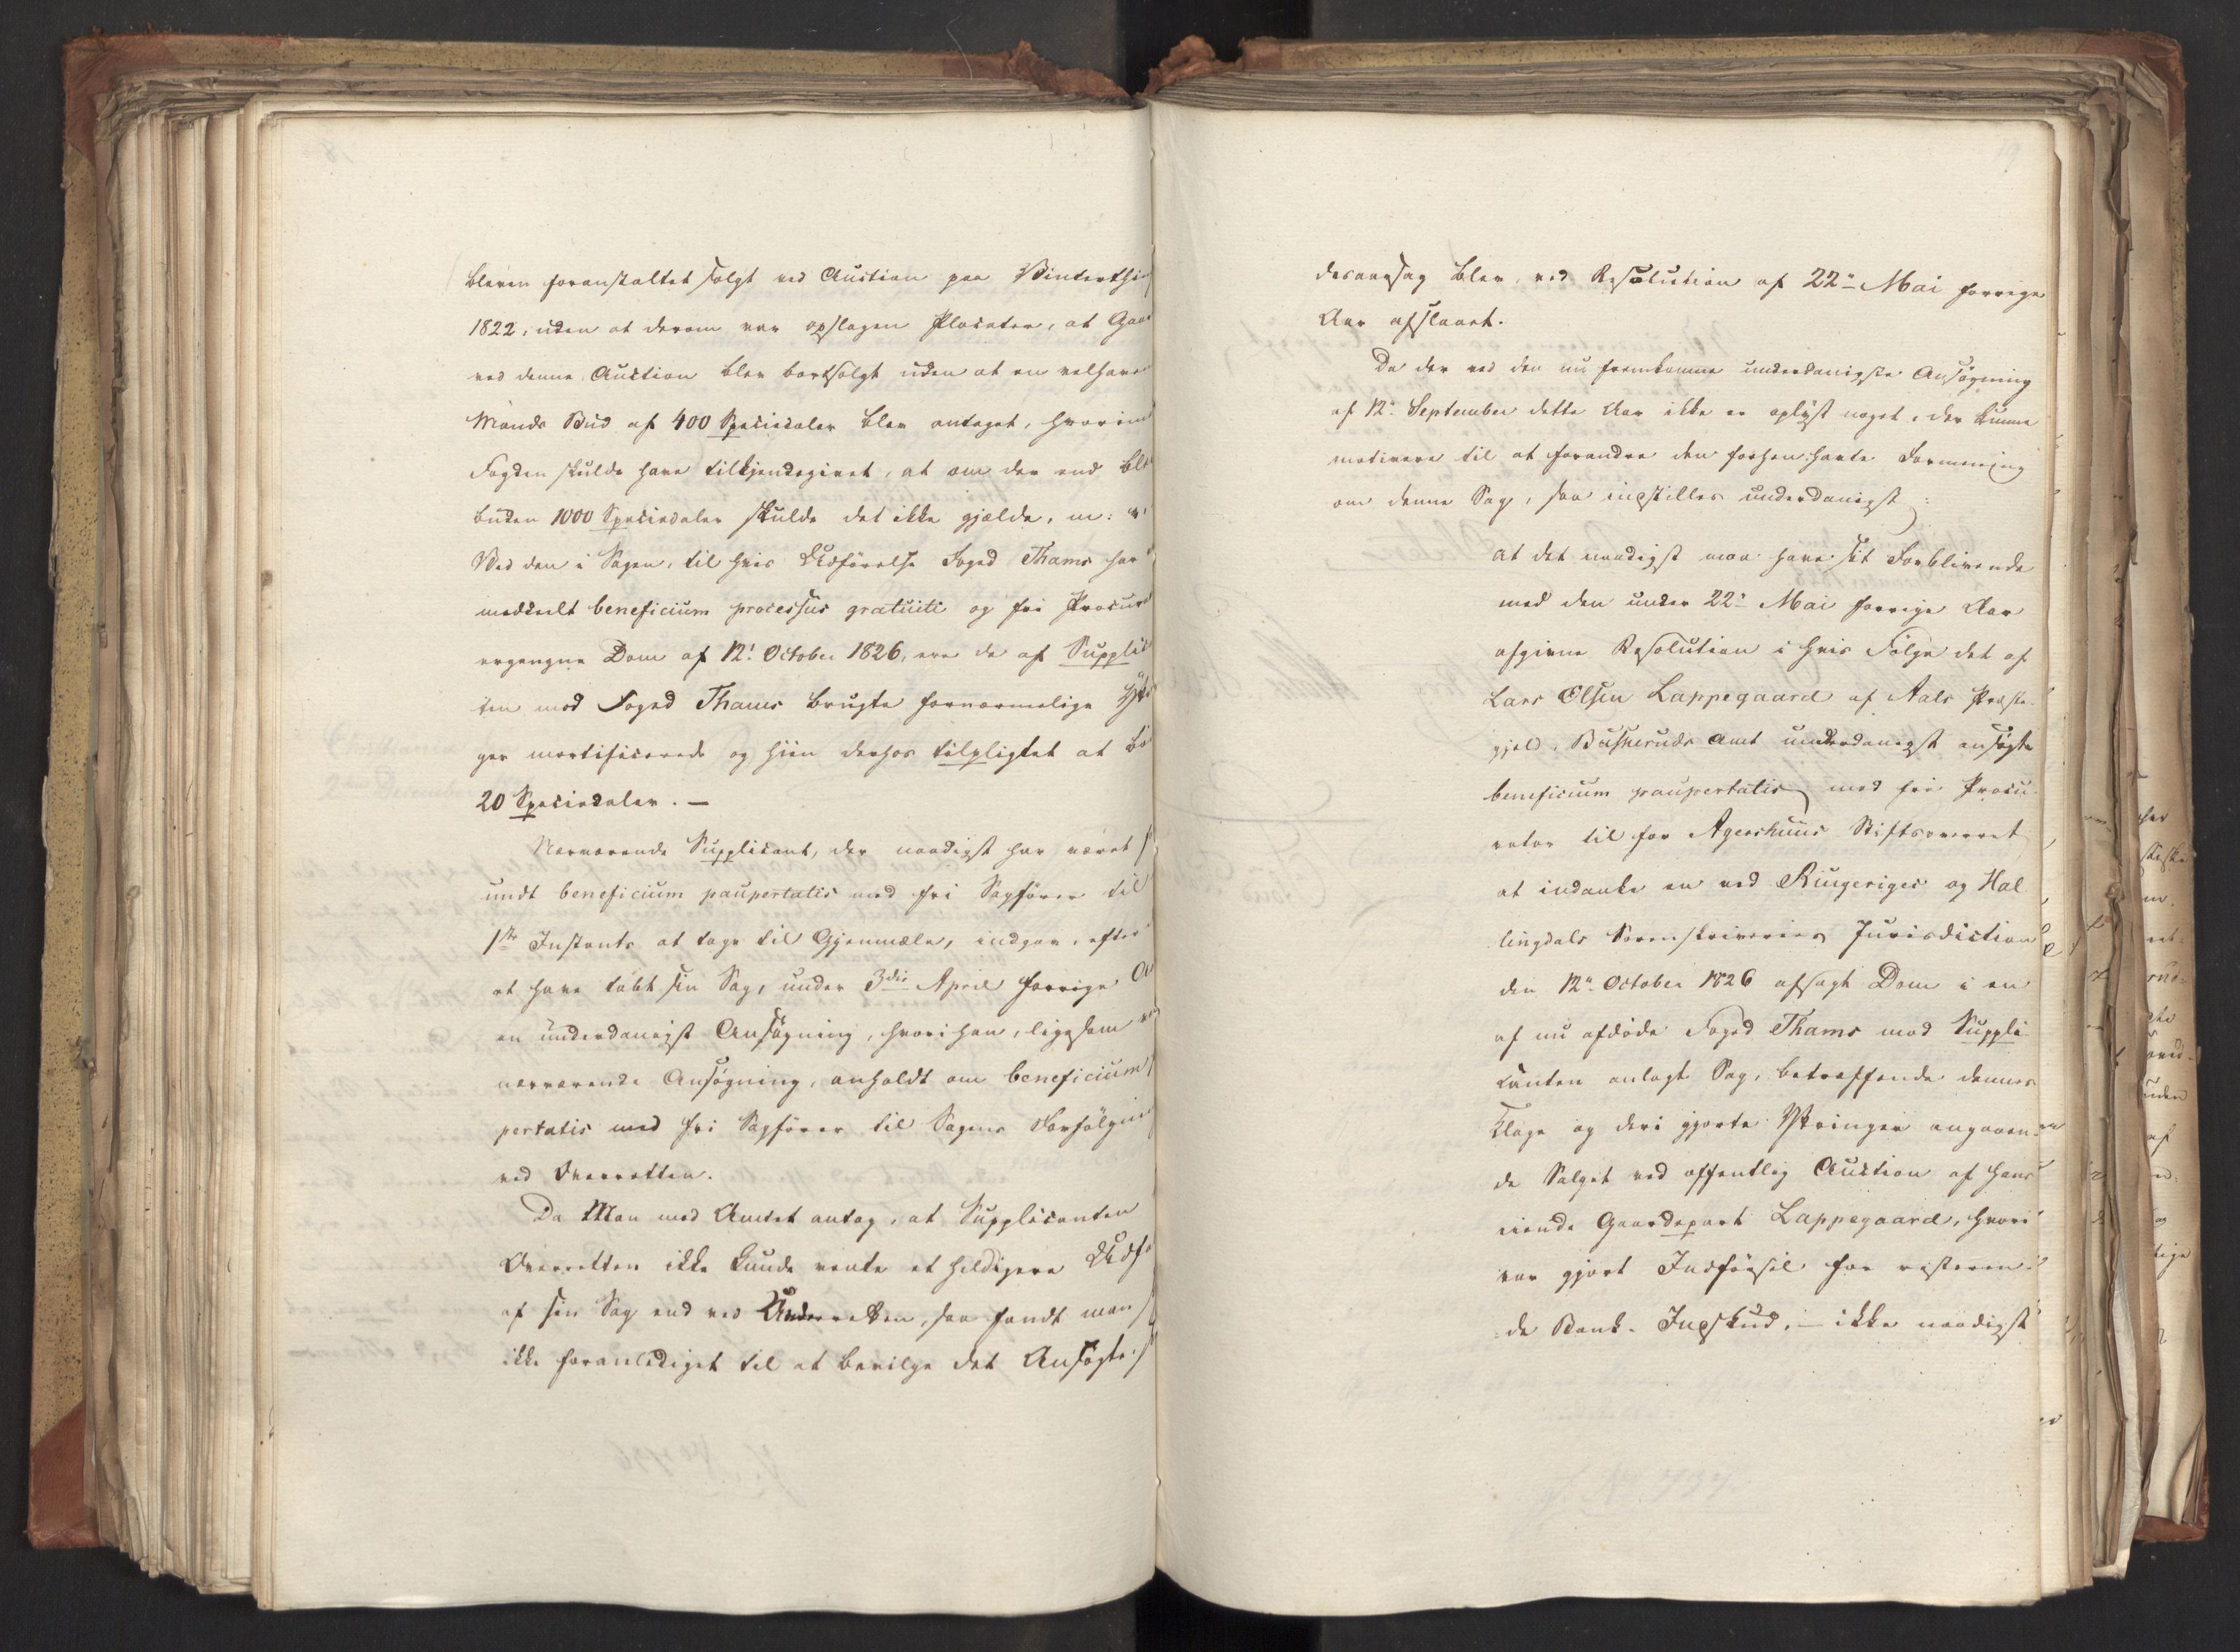 bleven foranstaltet solgt ved Auction paa Vinterthi
1822, uden at derom var opslagen Placater, at Gaar
ved denne Auction blev bortsolgt uden at en velhave
Mands Bud af 400 Speciedaler blev antaget, hvorimo
Fogden skulde have tilkjendegivet, at om der end blev
buden 1000 Speciedaler skulde det ikke gjælde, m: v:
Ved den i Sagen, til hvis Udförelse Foged Thams har
meddeelt beneficium processus gratuiti og fri Procura
ergangne Dom af 12t October 1826, ere de af Supplic
ten mod Foged Thams brugte fornærmelige Yttr
ger mortificerede og hiin derhos tilpligtet at bö
20 Speciedaler. —
Nærværende Supplicant, der naadigst har været
undt beneficium paupertatis med fri Sagförer til
1ste Instants at tage til Gjenmæle, indgav, efter
at have tabt sin Sag, under 3die April forrige Aa
en underdanigst Ansögning, hvori han, ligesom
nærværende Ansögning, anholdt om beneficium
pertatis med fri Sagförer til Sagens Forfölgni
ved Overretten.
Da Man med Amtet antog, at Supplicanten
Overretten ikke kunde vente et heldigere Udf
af sin Sag end ved Underretten, saa fandt man
ikke foranlediget til at bevilge det Ansögte,
desaarsag blev, ved Resolution af 22de Mai forrige
Aar afslaaet.
Da der ved den nu fremkomne underdanigste Ansögning
af 12te September dette Aar ikke er oplyst noget, der kunne
motivere til at forandre den forhen havte Formening
om denne Sag, saa indstilles underdanigst:
at det naadigst maa have sit Forblivende
med den under 22de Mai forrige Aar
afgivne Resolution i hvis Fölge det af
Lars Olsen Lappegaard af Aals Præste-
gjeld, Buskeruds Amt underdanigst ansögte
beneficium paupertatis med fri Procu-
rator til for Agershuus Stiftsoverret
at indanke en ved Ringeriges og Hal
lingdals Sorenskriveries Jurisdiction
den 12te October 1826 afsagt Dom i en
af nu afdöde Foged Thams mod Suppli
canten anlagt Sag, betræffende dennes
Klage og deri gjorte Yttringer angaaen-
de Salget ved offentlig Auction af hans
eiende Gaardepart Lappegaard, hvori
var gjort Indförsel for resteren-
de Bank-Indskud, — ikke naadigst